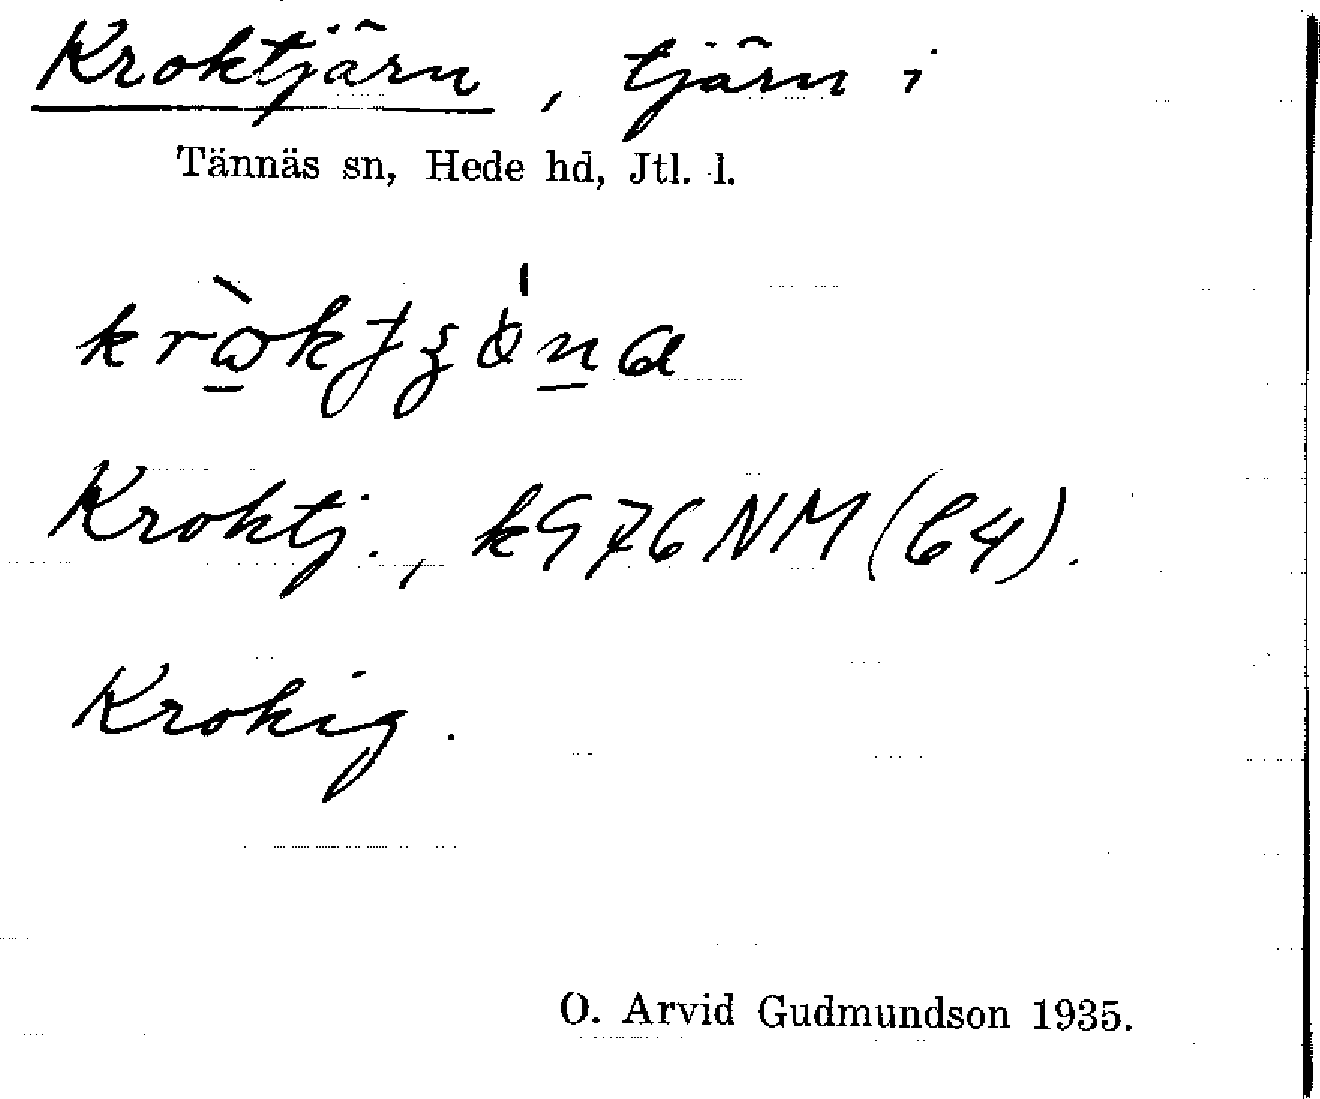 Kroktjärn, tjärn i
Tännäs sn, Hede hd, Jtl. l.
Kroktj., k976NM(64).
Krokig.
O. Arvid Gudmundson 1935.